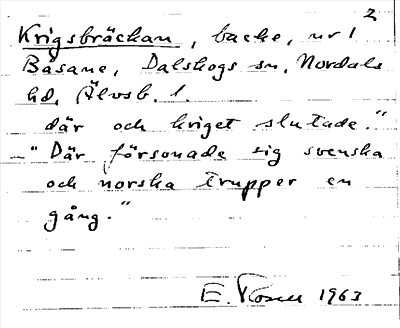 2
Krigsbräckan, backe, nr 1
Båsane, Dalskogs sn, Nordals
hd, Älvsb. l.
där och kriget slutade."
—"Där försonade sig svenska
och norska trupper en
gång."
E. Rosell 1963